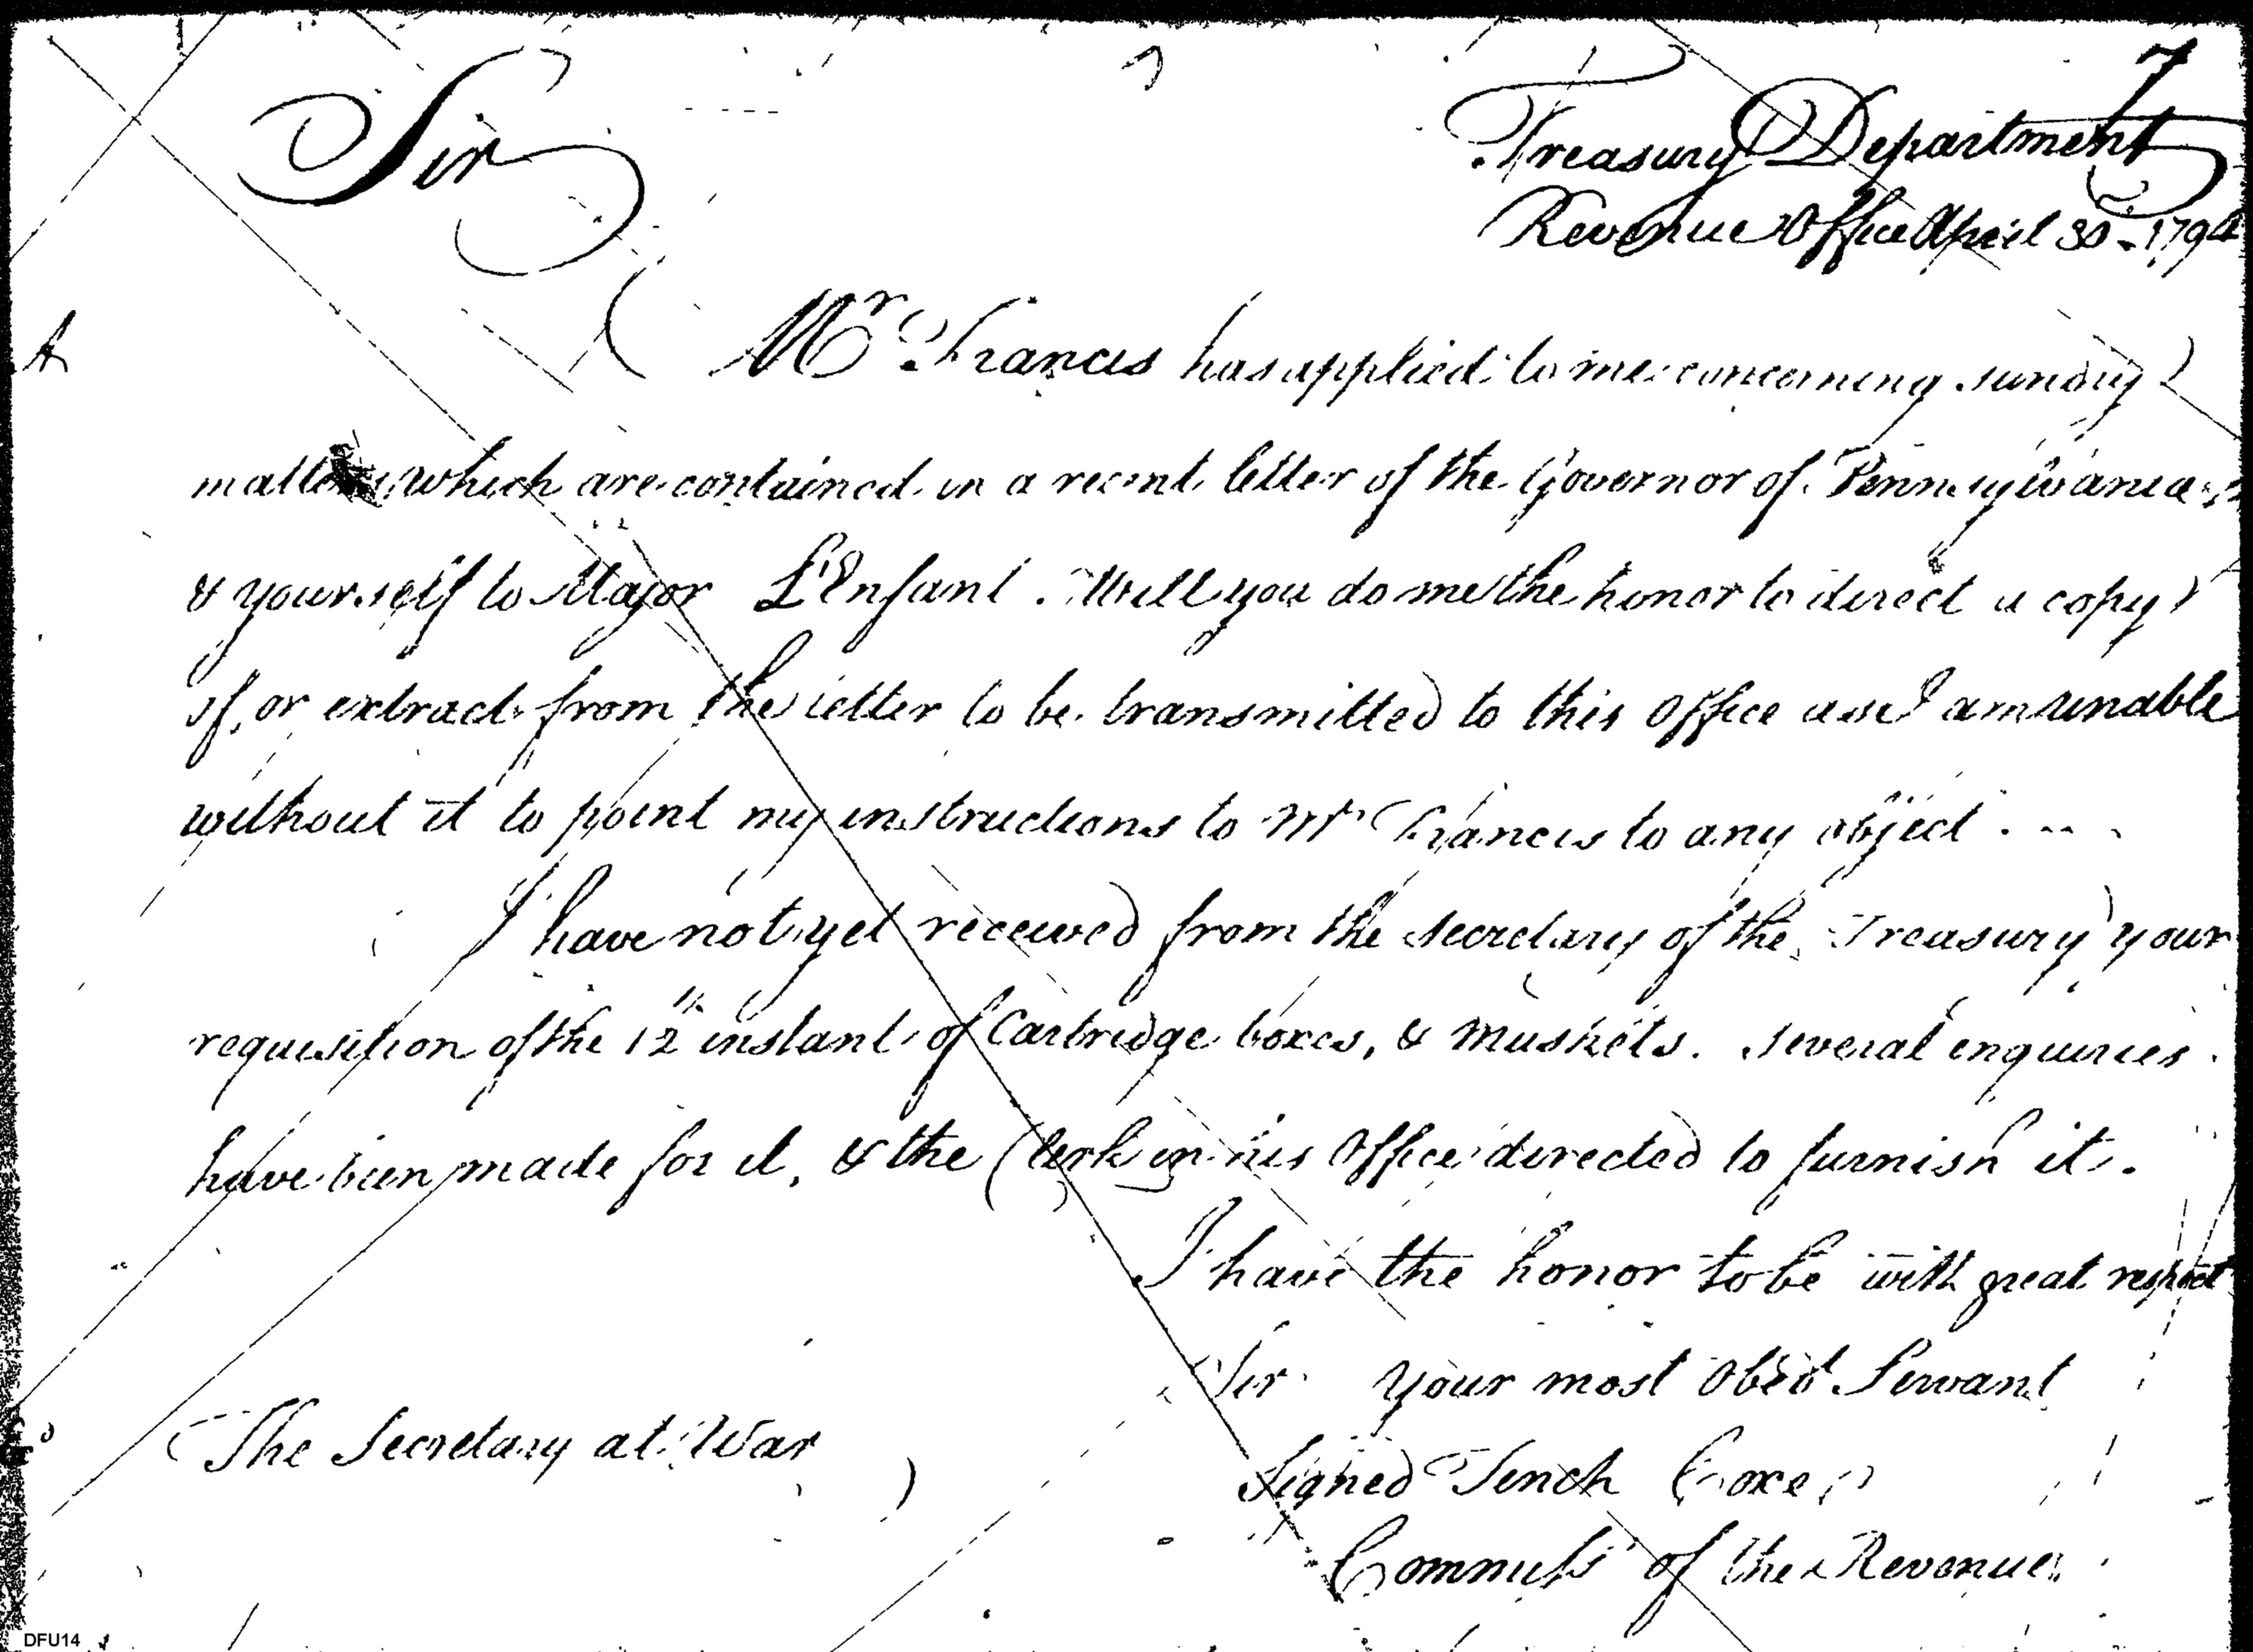 7
Sir
Treasury Department
Revenue Office April 30th 1794
Mr Francis has applied to me concerning sundry
matters which are contained in a recent letter of the Governor of Pennsylvania
& yourself to Major L'Enfant. Will you do me the honor to direct a copy
of, or extract from the letter to be transmitted to this Office as I am unable
without it to point my instructions to Mr Francis to any object.
I have not yet received from the Secretary of the Treasury your
requisition of the 12th instant of Cartridge boxes, & Muskets. Several enquiries
have been made for it, & the Clerk in his Office directed to furnish it.
I have the honor to be with great respect
Sir your most Obed Servant
The Secretary at War
Signed Tench Coxe
Commissr of the Revenue
DFU14